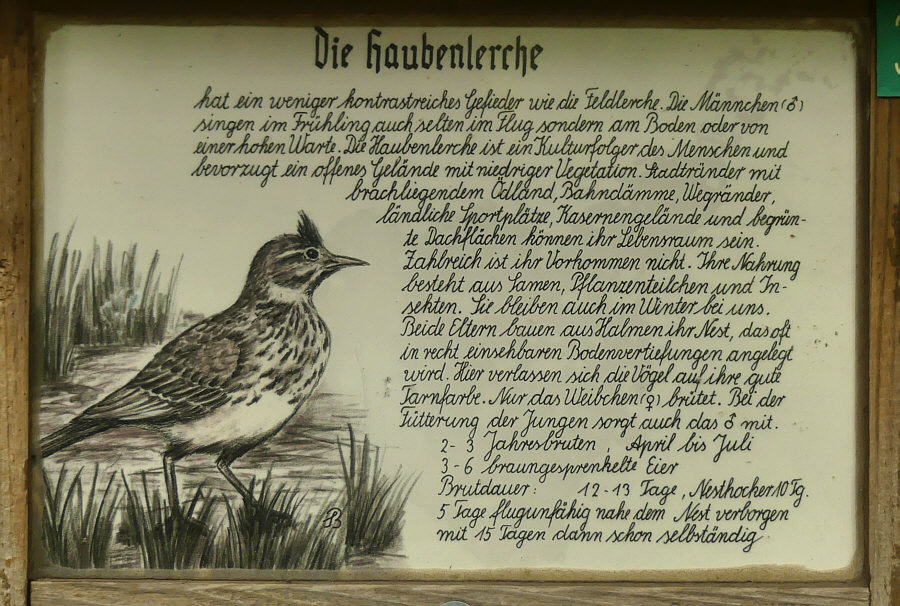 Die Haubenlerche
hat ein weniger kontrastreiches Gefieder wie die Feldlerche. Die Männchen (♂)
singen im Frühling auch selten im Flug sondern am Boden oder von
einer hohen Warte. Die Haubenlerche ist ein Kulturfolger des Menschen und
bevorzugt ein offenes Gelände mit niedriger Vegetation. Stadtränder mit
brachliegendem Ödland, Bahndämme, Wegränder,
ländliche Sportplätze, Kasernengelände und begrün-
te Dachflächen können ihr Lebensraum sein.
Zahlreich ist ihr Vorkommen nicht. Ihre Nahrung
besteht aus Samen, Pflanzenteilchen und In-
sekten. Sie bleiben auch im Winter bei uns.
Beide Eltern bauen aus Halmen ihr Nest, das oft
in recht einsehbaren Bodenvertiefungen angelegt
wird. Hier verlassen sich die Vögel auf ihre gute
Tarnfarbe. Nur das Weibchen (♀) brütet. Bei der
Fütterung der Jungen sorgt auch das ♂ mit.
2-3 Jahresbruten, April bis Juli
3-6 braungesprenkelte Eier
Brutdauer: 12-13 Tage, Nesthocker 10 Tg.
5 Tage flugunfähig nahe dem Nest verborgen
mit 15 Tagen dann schon selbständig